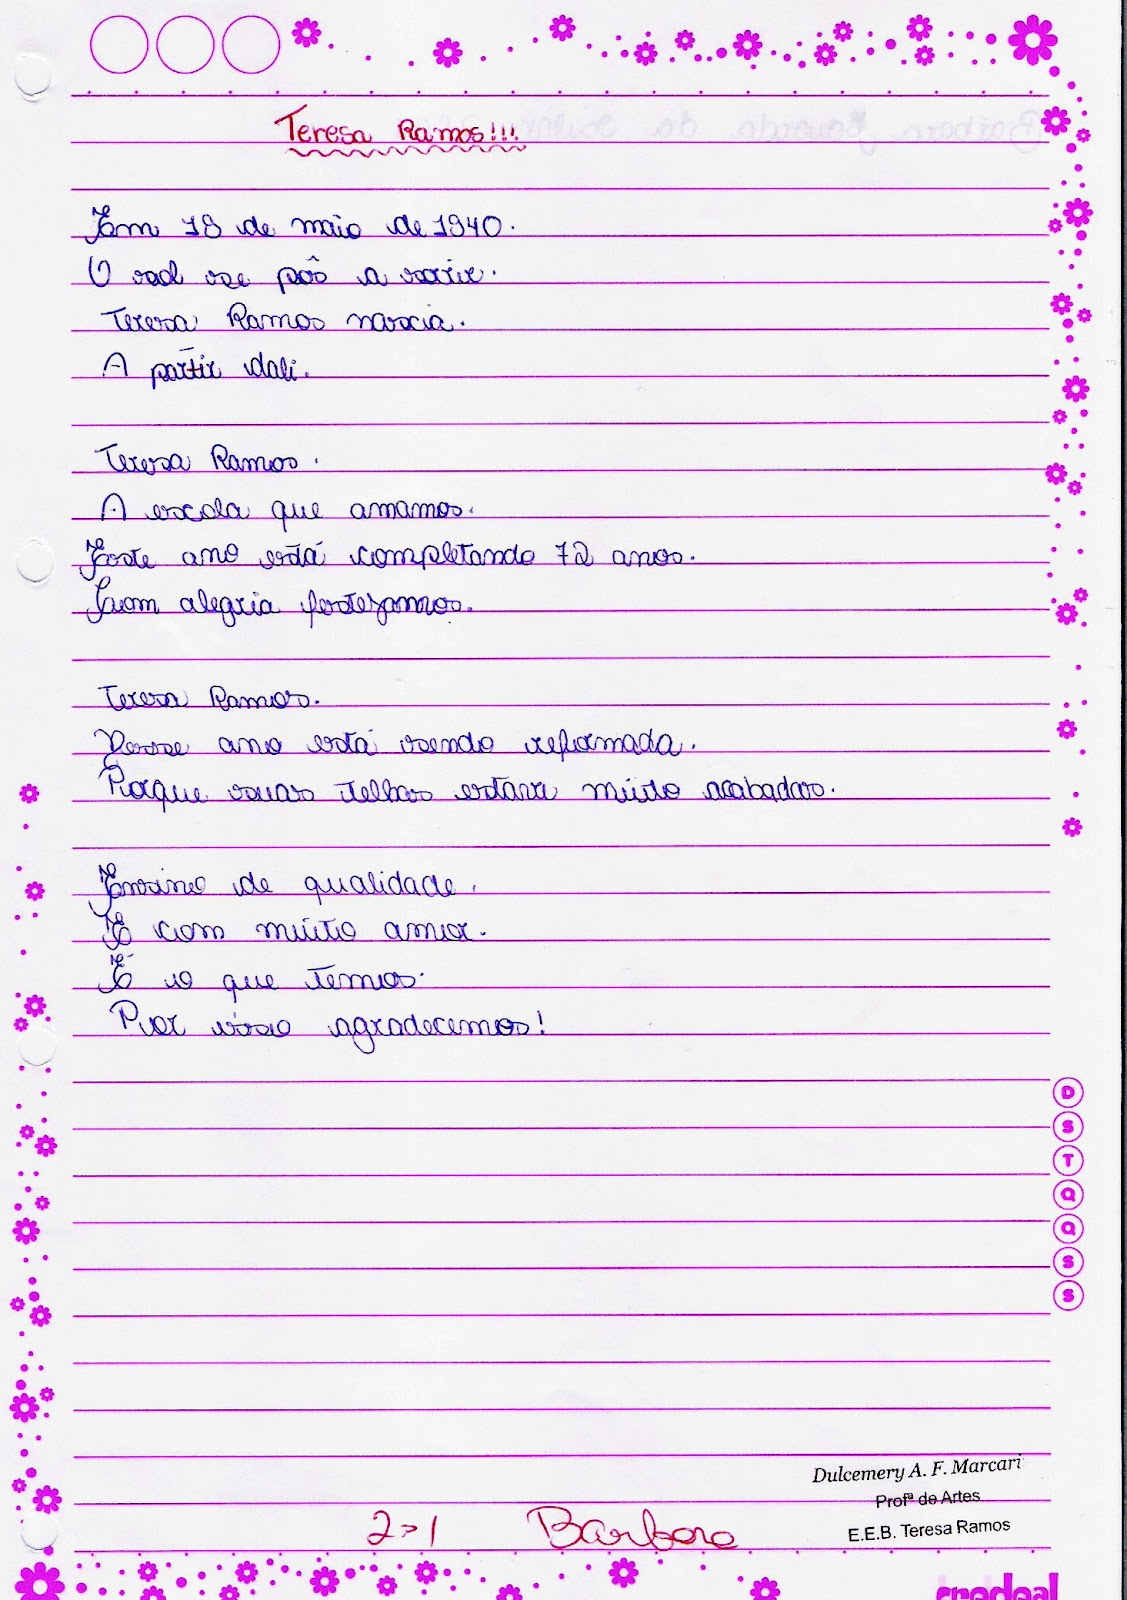 Teresa Ramos!!!
Em 19 de maio de 1940.
O sol se pôs a sorrir.
Teresa Ramos nascia.
A partir dali.
Teresa Ramos.
A escola que amamos.
Este ano está completando 72 anos.
Com alegria festejamos.
Teresa Ramos.
Desse ano está sendo reformada.
Porque suas telhas estava muito acabadas.
Ensino de qualidade.
E com muito amor.
É o que temos.
Por isso agradecemos!
D
S
T
Q
Q
S
S
Dulcemery A. F. Marcari
Profª de Artes
E.E.B. Teresa Ramos
2>1 Barbara
credeal